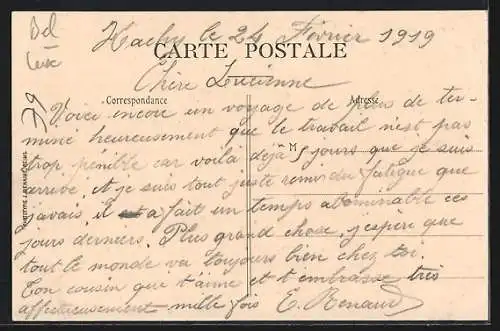 Bel
Luxe
79
Hachy le 24 Février 1919
CARTE POSTALE
Chère Lucienne
Correspondance
Adresse
Voici encore un voyage de plus de ter-
miné heureusement que le travail n'est pas
trop penible car voila dejà 5 jours que je suis
M
arrivé et je suis tout juste remi du fatigue que
j'avais, il a fait un temps abominable ces
jours derniers. Plus grand chose, j'espère que
tout le monde va toujours bien chez toi.
Ton cousin qui t'aime et t'embrasse très
affectueusement mille fois E. Renaud